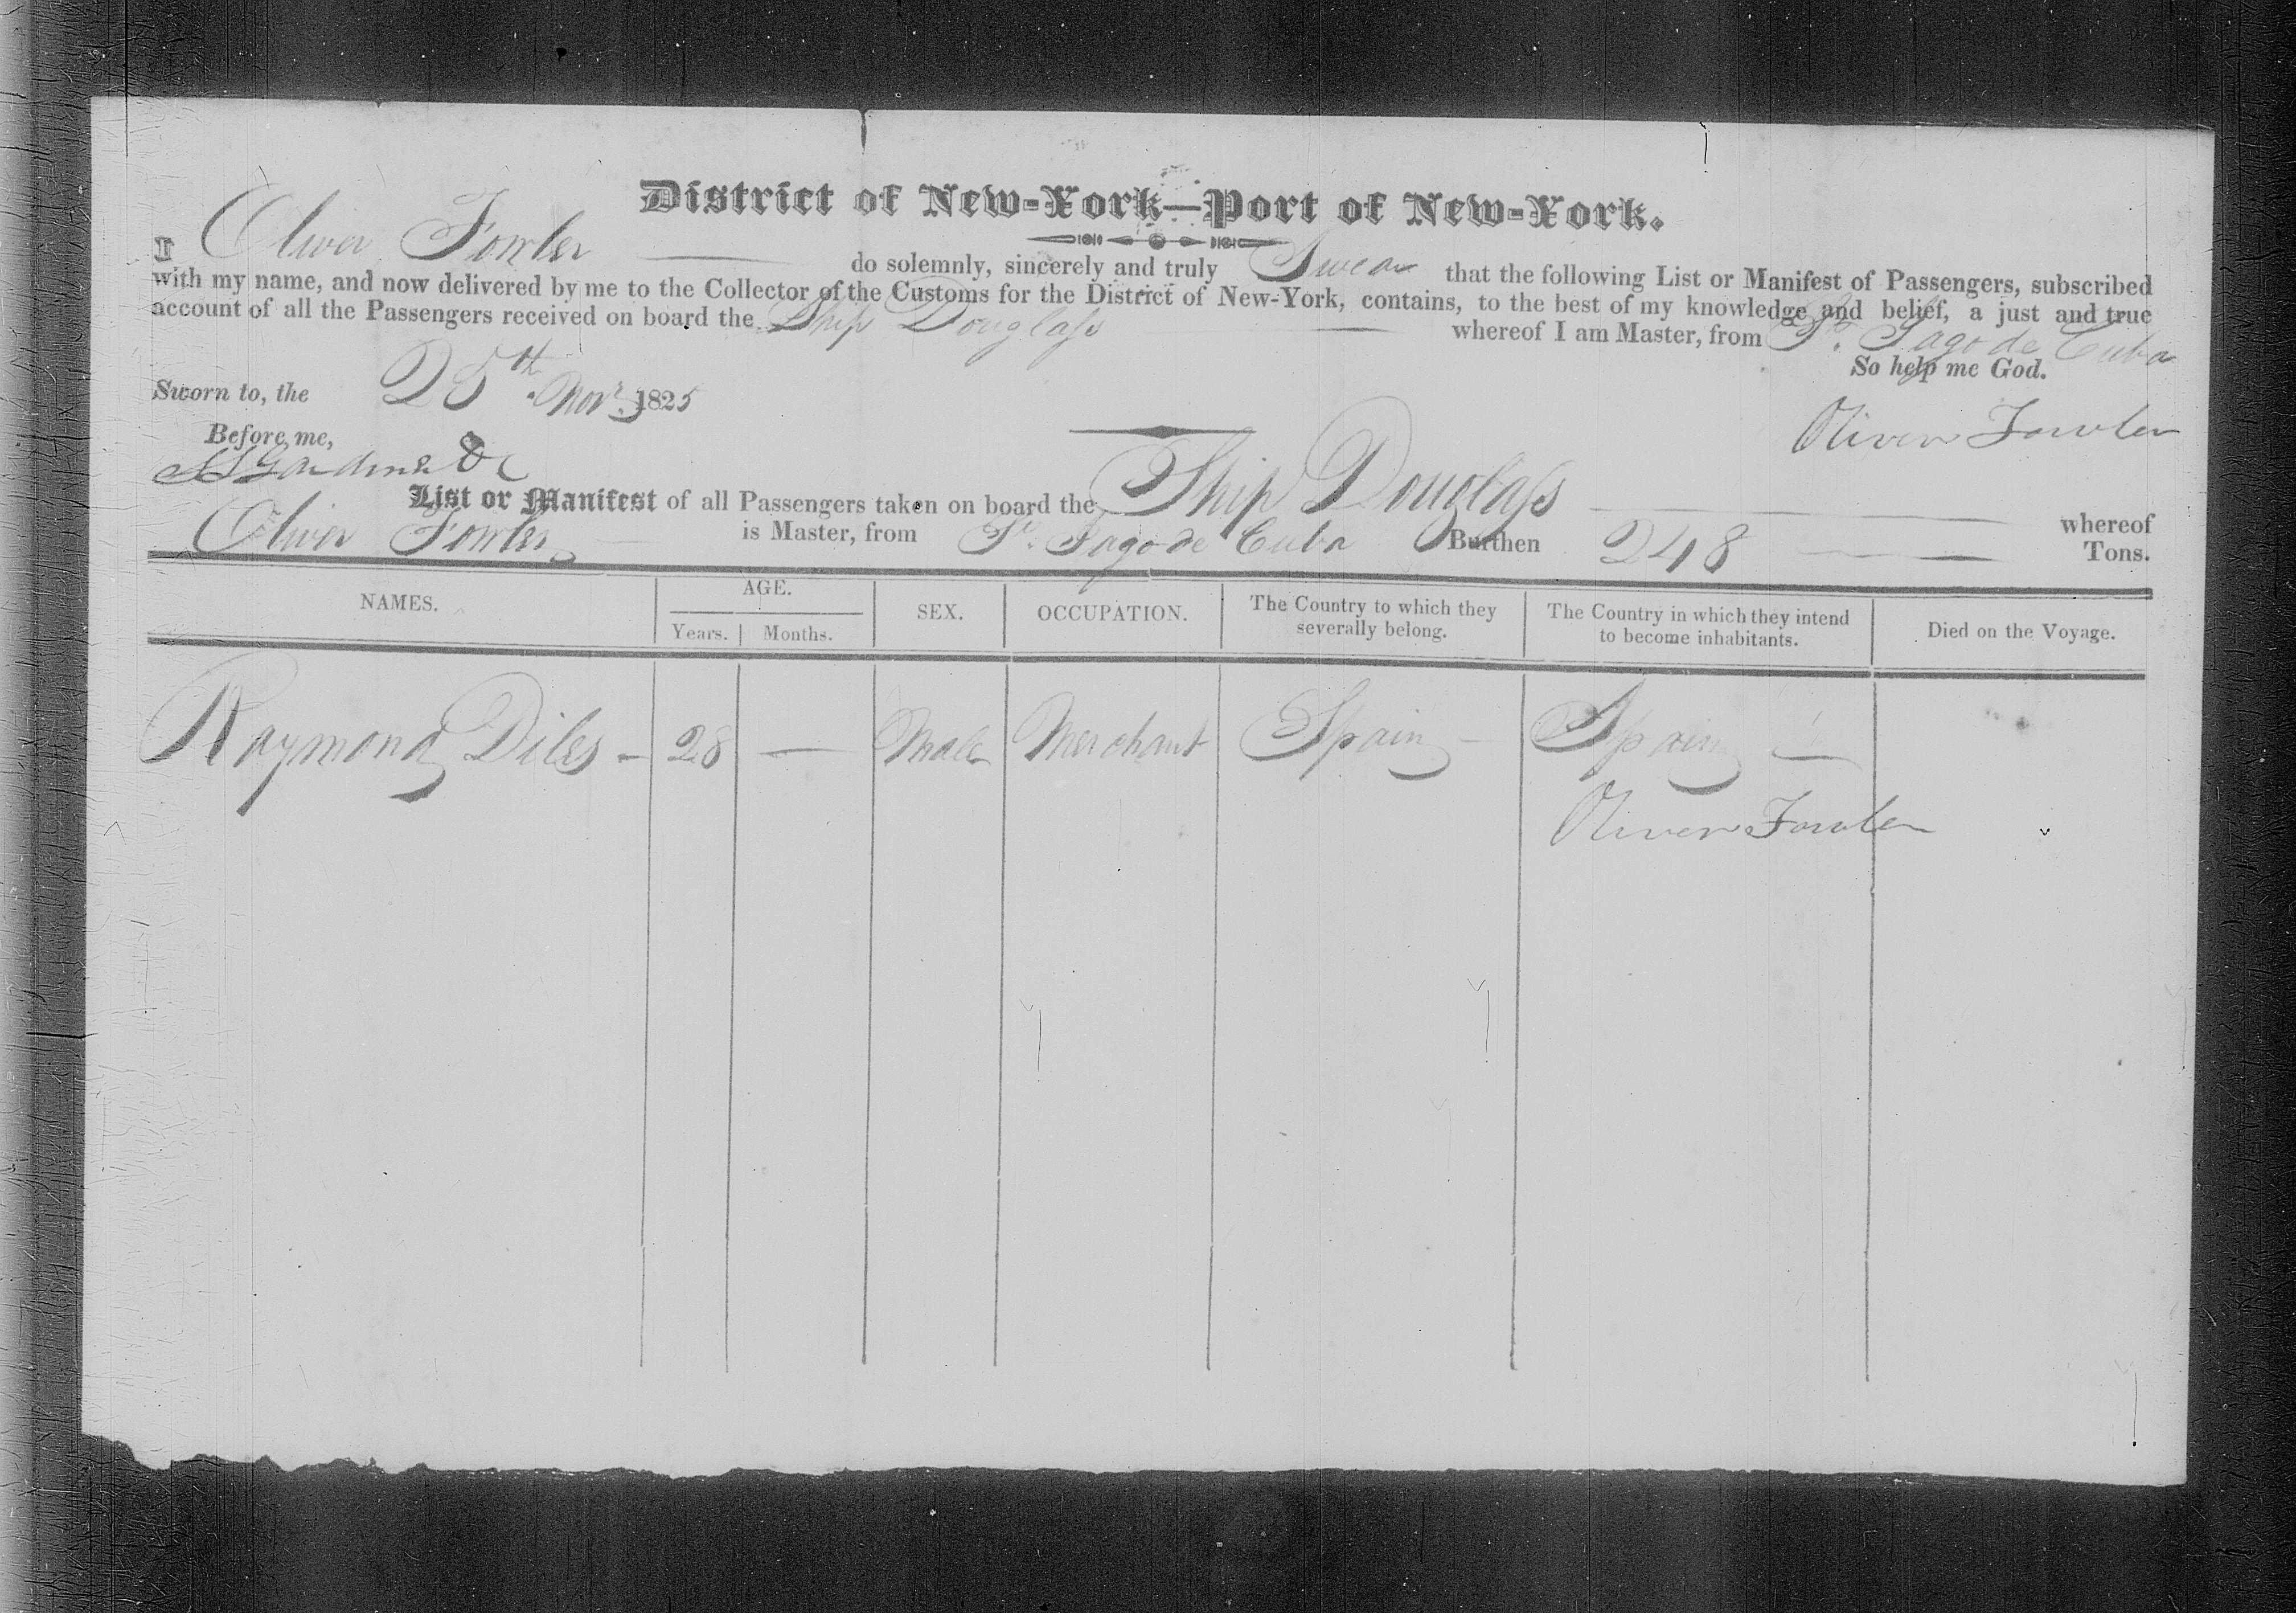 District of New-York—Port of New-York.
I Oliver Fowler do solemnly, sincerely and truly Swear that the following List or Manifest of Passengers, subscribed
with my name, and now delivered by me to the Collector of the Customs for the District of New-York, contains, to the best of my knowledge and belief, a just and true
account of all the Passengers received on board the Ship Douglass whereof I am Master, from St. Jago de Cuba
So help me God.
Sworn to, the 25th Novr. 1825
Oliver Fowler
Before me,
List or Manifest of all Passengers taken on board the Ship Douglass whereof
Oliver Fowler is Master, from St. Jago de Cuba Burthen 248 Tons.
NAMES. AGE. SEX. OCCUPATION. The Country to which they severally belong. The Country in which they intend to become inhabitants. Died on the Voyage.
Years. Months.
Raymond Diles — 28 — Male Merchant Spain — Spain —
Oliver Fowler